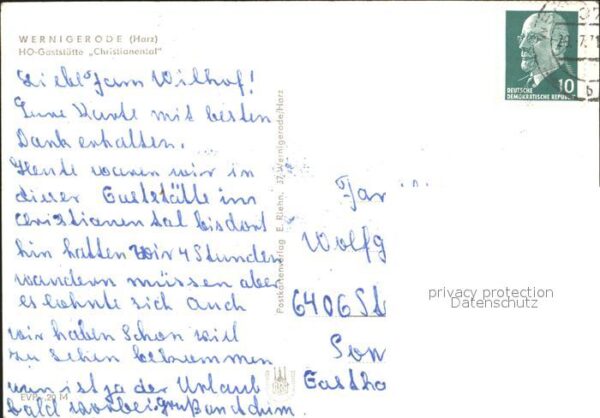 WERNIGERODE (Harz)
HO-Gaststätte „Christianental"
Liebe Fam Wilhof!
Eure Karte mit besten
Dank erhalten.
Heute waren wir in
dieser Gaststätte im
Cristianental bis dort
hin hatten wir 4 Stunden
wandern müssen aber
es lohnte sich Auch
wir haben Schon viel
zu Sehen bekommen
nun ist ja der Urlaub
bald vorbei
EVP -.20 M
Postkartenverlag E. Riehn, 37 Wernigerode/Harz
10
DEUTSCHE
DEMOKRATISCHE REPUBLIK
Wolfg
6406 St
Son
privacy protection
Datenschutz